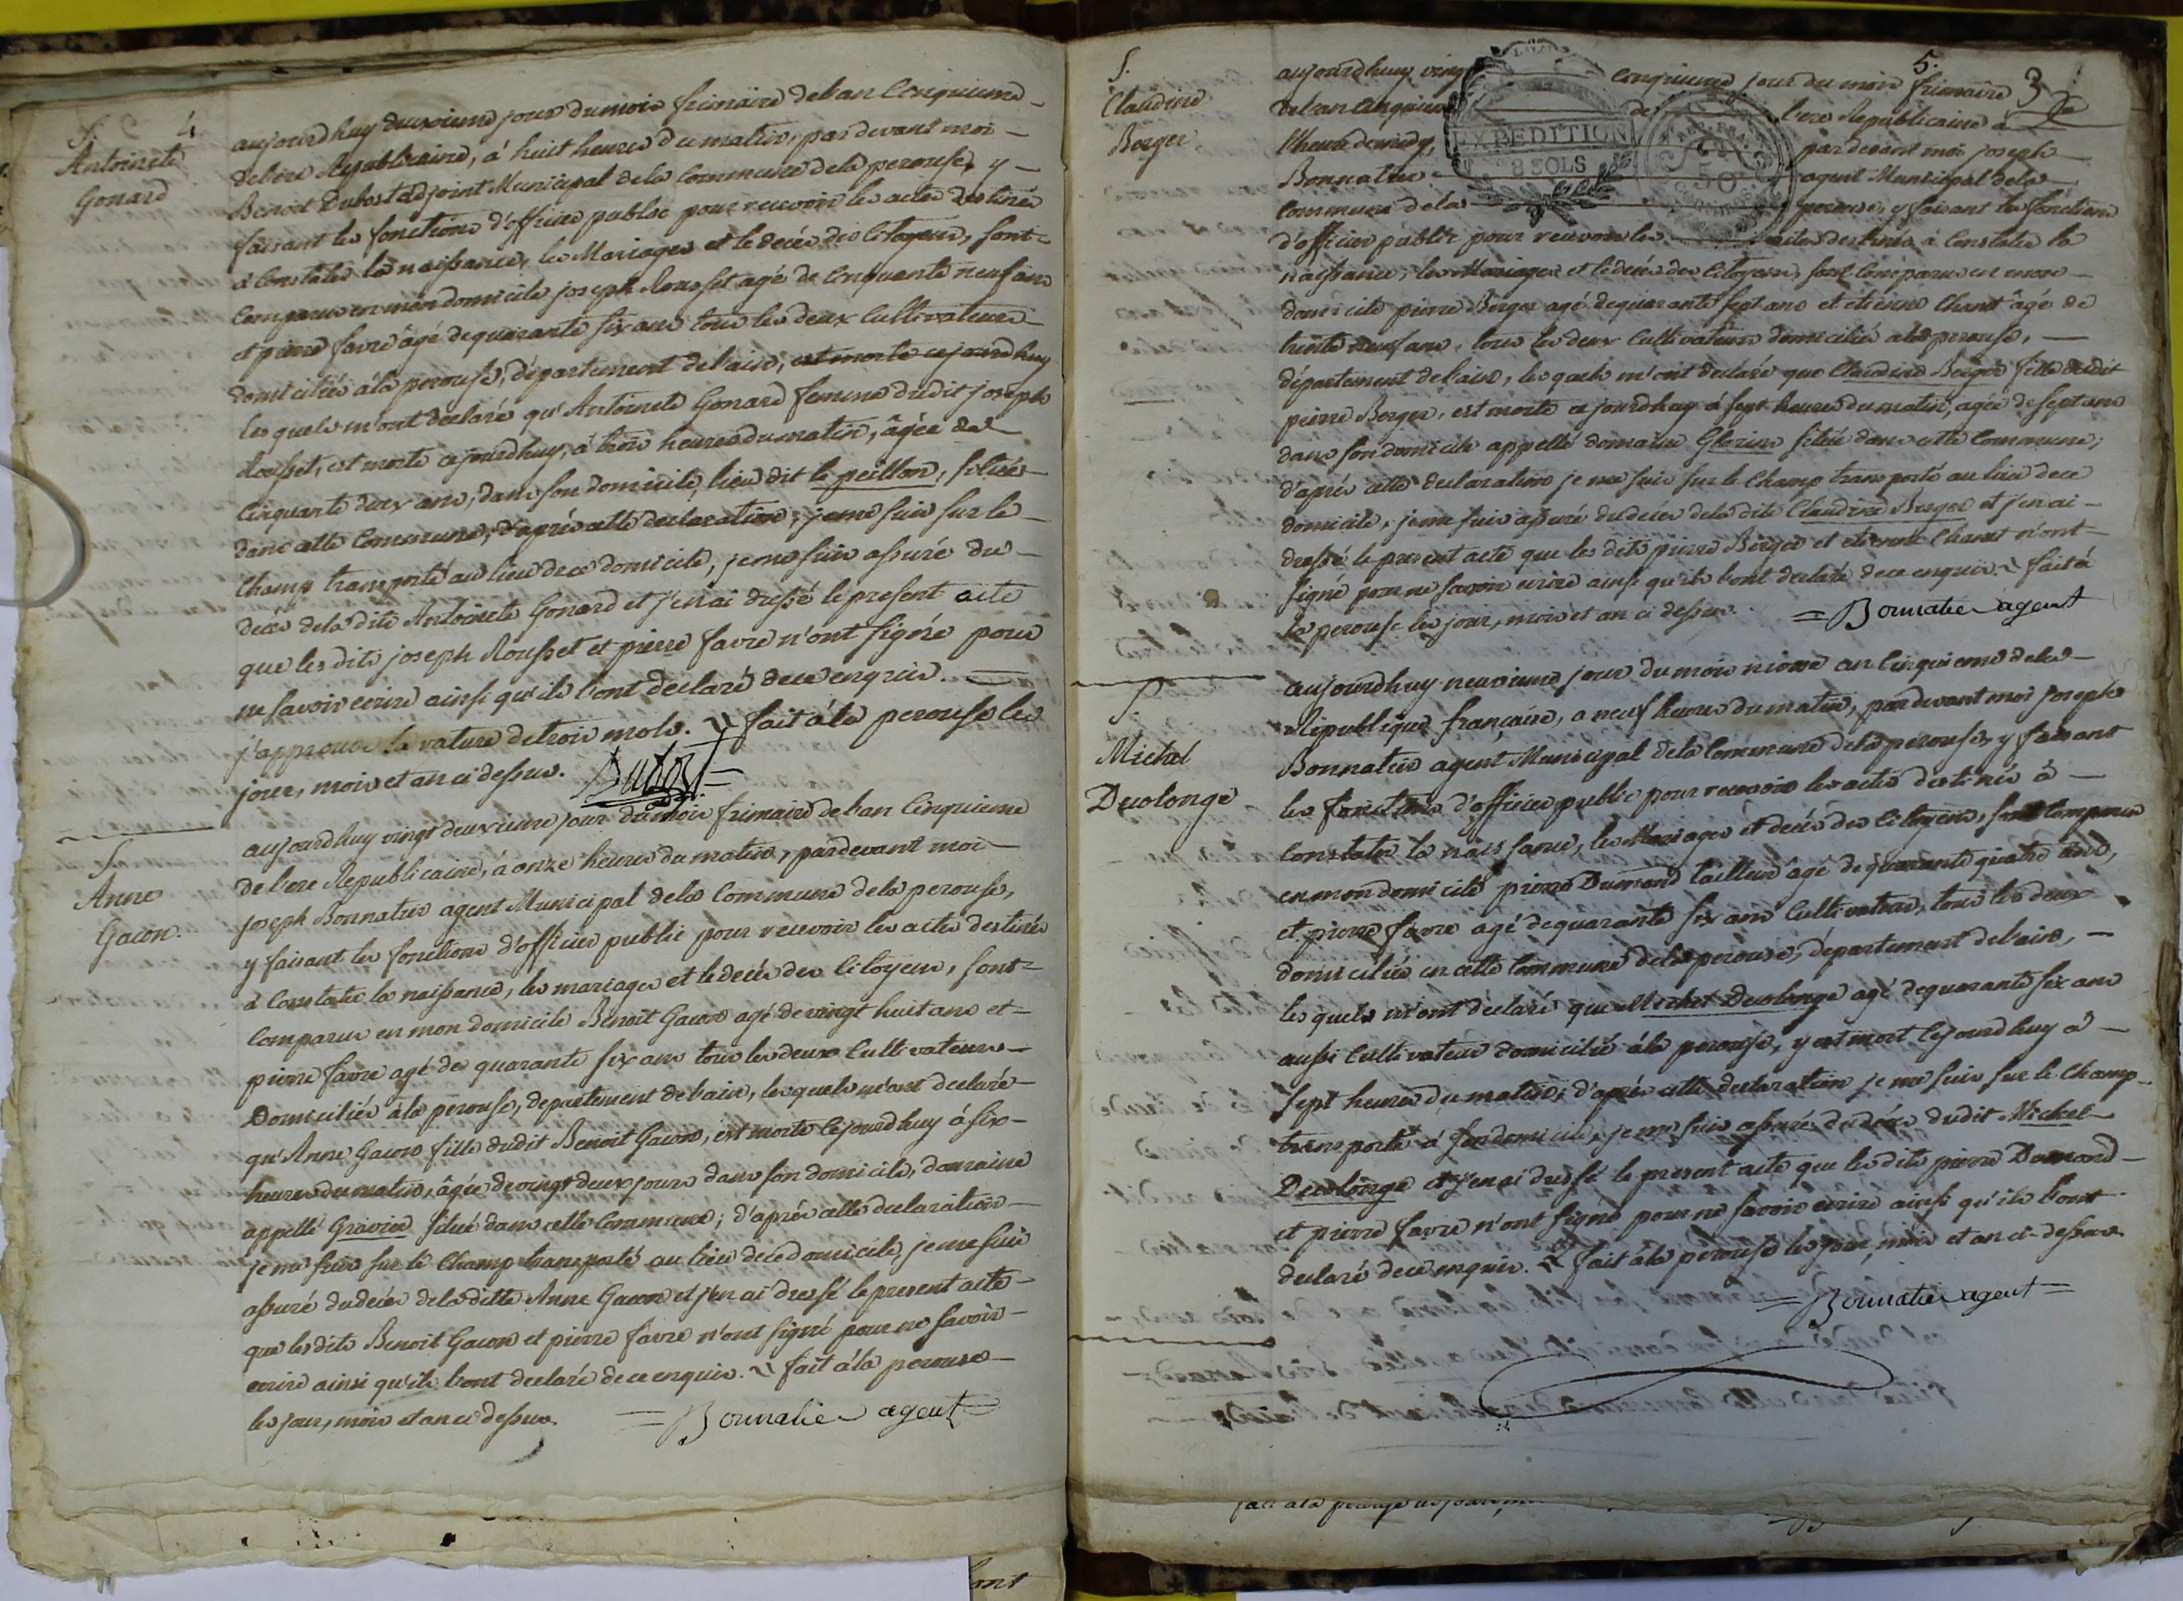 4
S.
Antoinete
Gonard
aujourdhuy deuxieme jour du mois frimaire de l'an Cinquieme
de l'ere Republicaine, à huit heures du matin, par devant moi
Benoit Dubost adjoint Municipal de la Commune de la perouse, y
faisant les fonctions d'officier public pour recevoir les actes destinés
à Constater la naissance, les Mariages et le decés des Citoyens, sont
Comparus en mon domicile joseph Rousset agé de Cinquante neuf ans
et pierre favre âgé de quarante six ans tous les deux Cultivateurs
domiciliés à la perouse, département de l'ain, est morte cejourdhuy
les quels m'ont declaré qu'Antoinete Gonard femme dudit joseph
Rousset, est morte cejourdhuy, à trois heures du matin, âgée de
Cinquante deux ans, dans son domicile, lieu dit le peillon, situé
dans cette Commune, d'après cette declaration, je me suis sur le
Champ transporté au lieu de ce domicile, je me suis assuré du
decés de la dite Antoinete Gonard et j'en ai dressé le present acte
que les dits joseph Rousset et pierre favre n'ont signés pour
ne savoir ecrire ainsi qu'ils l'ont declaré de ce enquis.
j'approuve la rature de trois mots. fait à la perouse les
jour, mois et an ci dessus. Dubost
S.
Anne
Gacon.
aujourdhuy vingt deuxieme jour du mois frimaire de l'an Cinquieme
de l'ere Republicaine, à onze heures du matin, par devant moi
joseph Bonnatier agent Municipal de la Commune de la perouse,
y faisant les fonctions d'officier public pour recevoir les actes destinés
à Constater la naissance, les mariages et le decés des Citoyens, sont
Comparus en mon domicile Benoit Gacon agé de vingt huit ans et
pierre favre agé de quarante six ans tous les deux Cultivateurs
Domiciliés à la perouse, departement de l'ain, lesquels m'ont declaré
qu'Anne Gacon fille dudit Benoit Gacon, est morte Cejourdhuy à six
heures du matin, âgée de vingt deux jours dans son domicile, domaine
appellé Gravier situé dans cette Commune; d'après cette declaration
je me suis sur le Champ transporté au lieu de ce domicile, je me suis
assuré du decés de la ditte Anne Gacon et j'en ai dressé le present acte
que les dits Benoit Gacon et pierre favre n'ont signé pour ne savoir
ecrire ainsi qu'ils l'ont declaré de ce enquis. fait à la perouse
les jour, mois et an ci dessus. Bonnatier agent
5.
3
S.
Claudine
Berger
aujourdhuy vingt Cinquieme jour du mois frimaire
de l'an Cinquieme de l'ere Republicaine à
l'heure de midy, par devant moi joseph
Bonnatier agent Municipal de la
Commune de la perouse, y faisant les fonctions
d'officier public pour recevoir les actes destinés à Constater la
naissance, les Mariages et le decés des Citoyens, sont Comparus en mon
domicile pierre Berger agé de quarante sept ans et etienne Chanet âgé de
trente neuf ans, tous les deux Cultivateurs domiciliés à la perouse,
département de l'ain, les quels m'ont declaré que Claudine Berger fille dudit
pierre Berger, est morte cejourdhuy à sept heures du matin, agée de sept ans
dans son domicile appellé domaine Glarins situé dans cette Commune,
d'après cette declaration je me suis sur le Champ transporté au lieu de ce
domicile, je me suis assuré du decés de la dite Claudine Berger et j'en ai
dressé le present acte que les dits pierre Berger et etienne Chanet n'ont
signé pour ne savoir ecrire ainsi qu'ils l'ont declaré de ce enquis. fait à
la perouse les jour, mois et an ci dessus. Bonnatier agent
EXPEDITION
8 SOLS
50
S.
Michel
Decolonge
aujourdhuy neuvieme jour du mois nivose an Cinquieme de la
Republique française, a neuf heures du matin, par devant moi Joseph
Bonnatier agent Municipal de la Commune de la perouse, y faisant
les fonctions d'officier public pour recevoir les actes destinés à
Constater la naissance, les Mariages et decés des Citoyens, sont Comparus
en mon domicile pierre Dumond tailleur âgé de quarante quatre ans,
et pierre favre agé de quarante six ans Cultivateur, tous les deux
domiciliés en cette Commune de la perouse, département de l'ain,
les quels m'ont declaré que Michel Decolonge agé de quarante six ans
aussi Cultivateur domicilié à la perouse, y est mort Cejourdhuy à
sept heures du matin; d'après cette declaration je me suis sur le Champ
transporté à son domicile, je me suis assuré du decés dudit Michel
Decolonge et j'en ai dressé le present acte que les dits pierre Dumond
et pierre favre n'ont signé pour ne savoir ecrire ainsi qu'ils l'ont
declaré de ce enquis. fait à la perouse les jour, mois et an ci dessus
Bonnatier agent